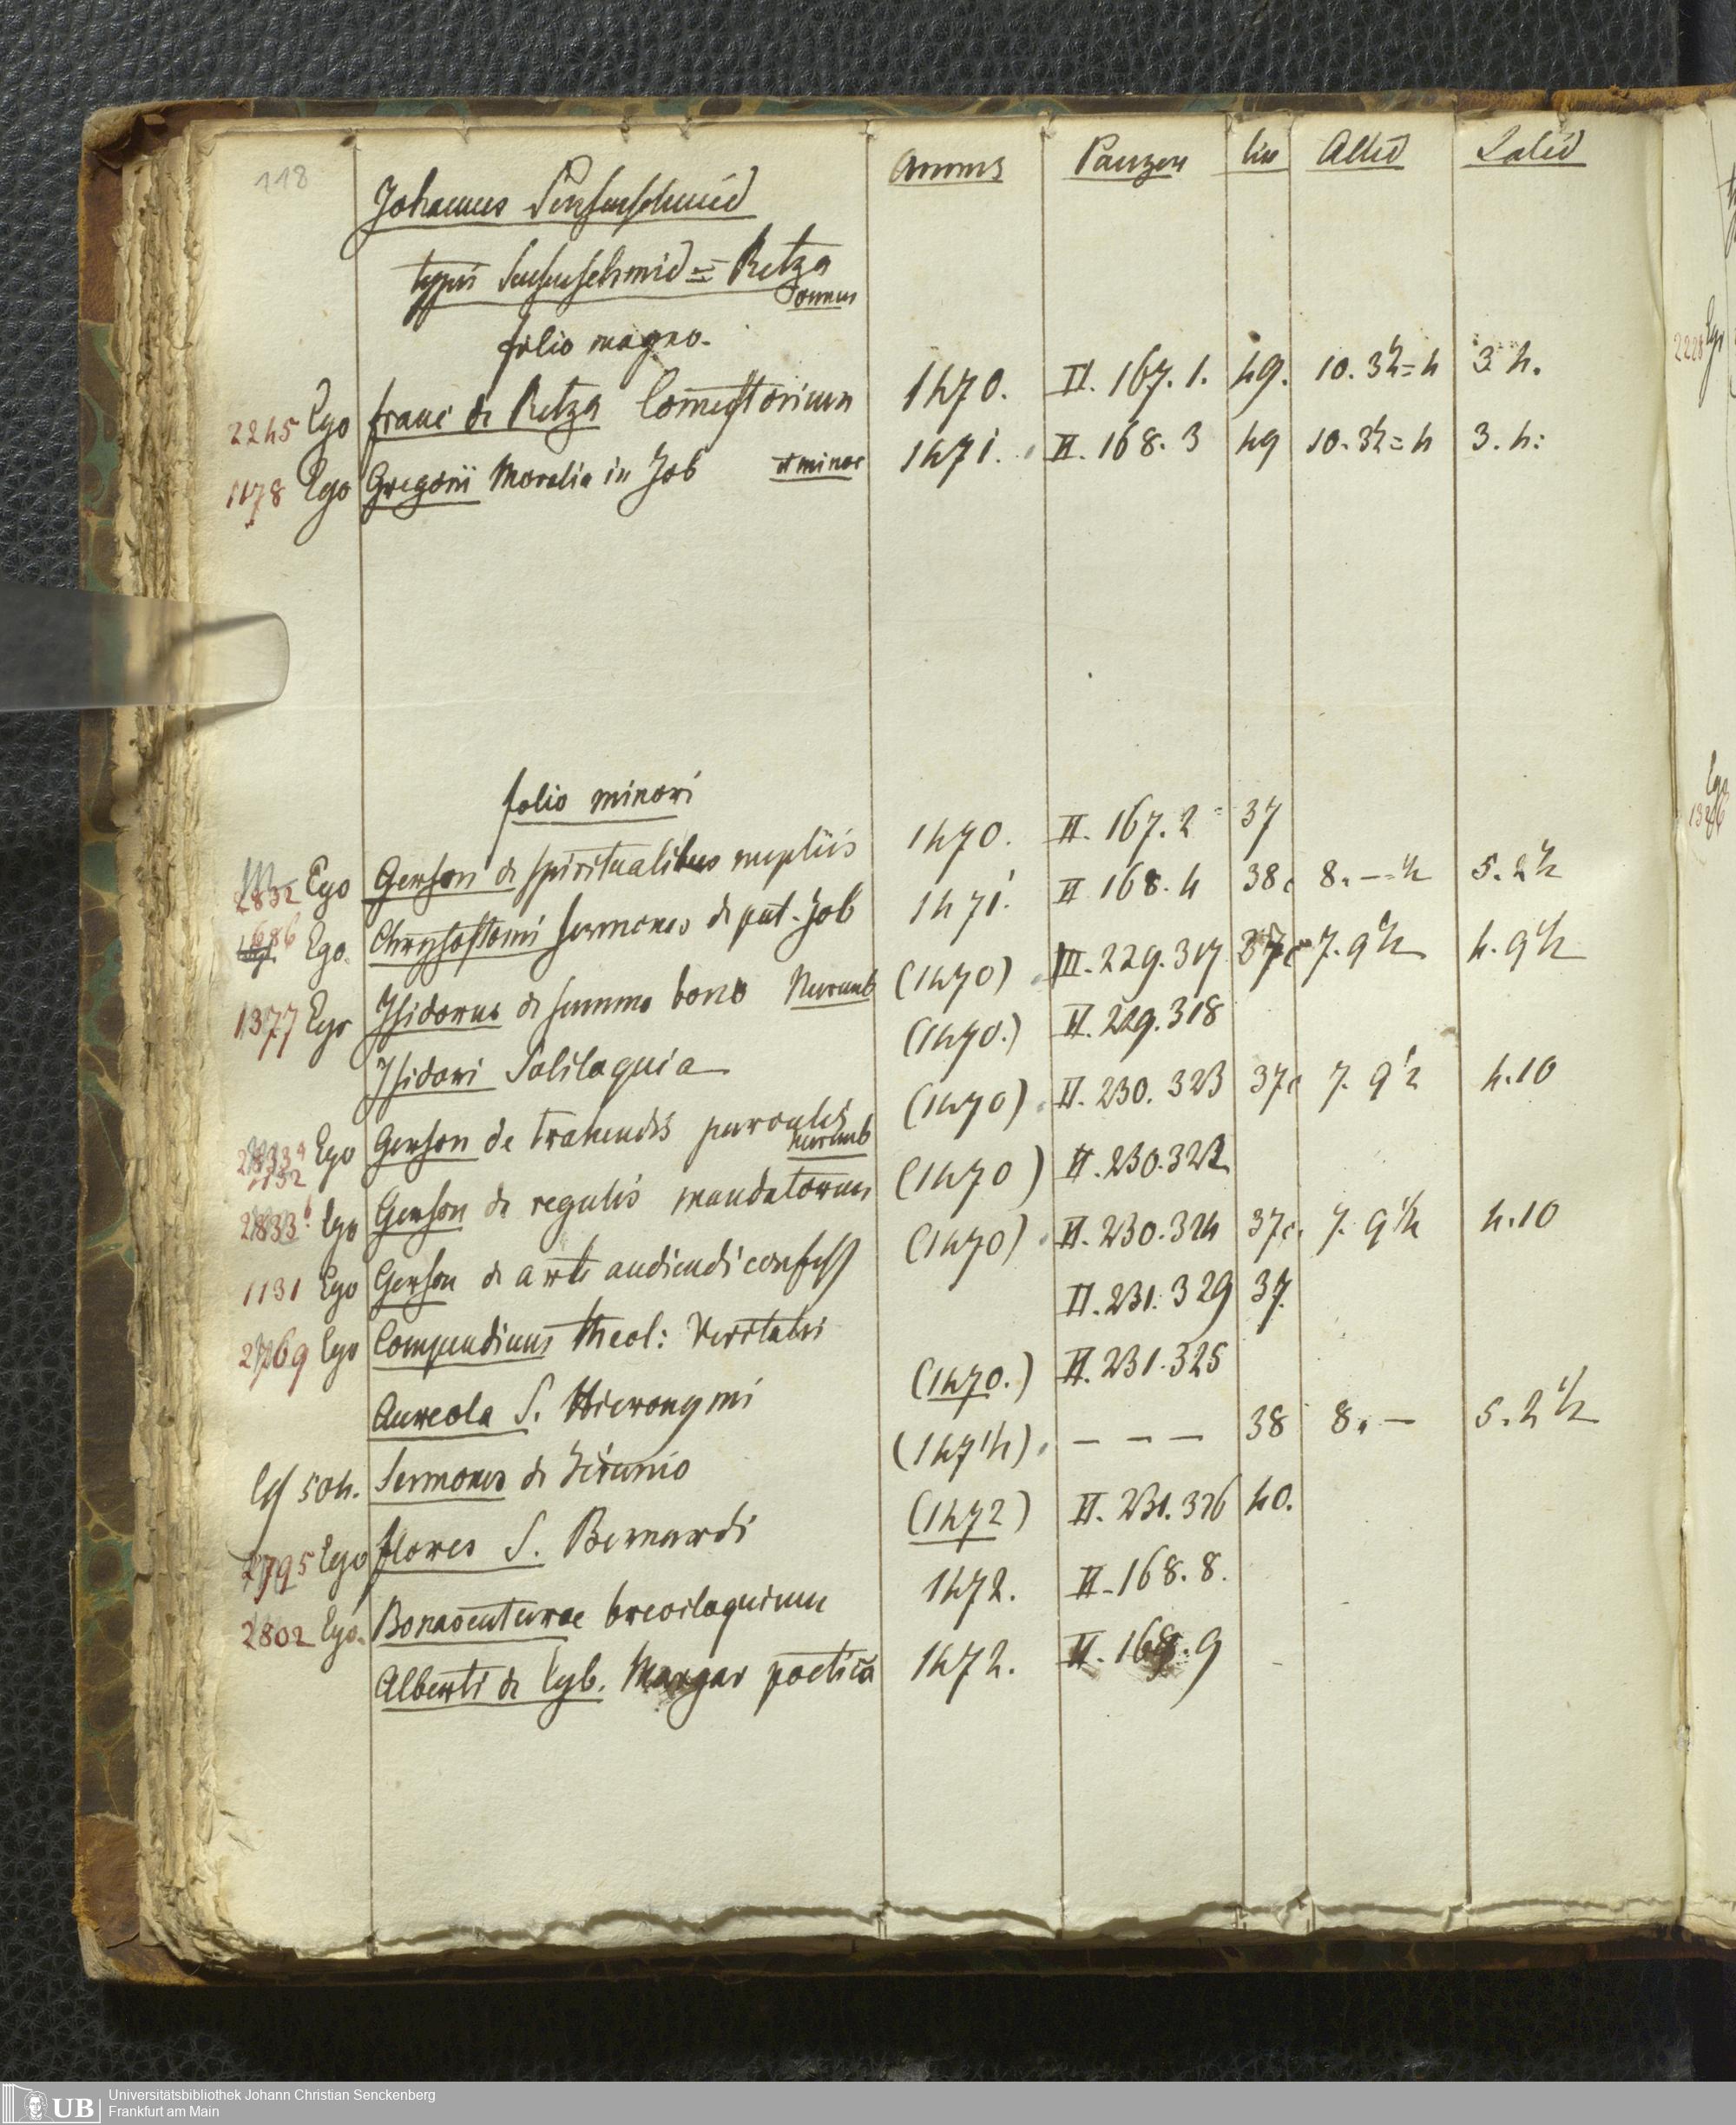 118
Annus Panzer lin Altid Latid
Johannes Sensenschmid
typis Sensenschmid = Retza
folio magno.
2245 Ego franc de Retza Comestorium 1470. II. 167. 1. 49. 10. 3½ = 4 3. 4.
1178 Ego Gregorii Moralia in Job et minor 1471. II. 168. 3 49 10. 3½ = 4 3. 4:
folio minori
2832 Ego Gerson de spiritualibus nuptiis 1470. II. 167. 2 37
686 Ego. Chrysostomi sermones de pat. Job 1471. II 168. 4 38 8. — ½ 5. 2½
1377 Ego Isidorus de summo bono Nurmb (1470) III. 229. 317 37 7. 9½ 4. 9½
Isidori Soliloquia (1470.) II. 229. 318
2833 a Ego Gerson de trahendis parvulis nurmb (1470) II. 230. 323 37 7. 9½ 4. 10
1132
2833 b Ego Gerson de regulis mandatorum (1470) II. 230. 322
1131 Ego Gerson de arte audiendi confess (1470) II. 230. 324 37 7. 9½ 4. 10
2769 Ego Compendium theol: Veritatis II. 231. 329 37.
Aureola S. Hieronymi (1470.) II. 231. 325
504. Sermones de (1471/4) — — — 38 8. — 5. 2½
2795 Ego flores S. Bernardi (1472) II. 231. 326 40.
2802 Ego. Bonaventurae breviloquium 1472. II. 168. 8.
Alberti de Eyb. Margar poetica 1472. II. 168. 9
2228 Ego
Ego
1386
UB Universitätsbibliothek Johann Christian Senckenberg
Frankfurt am Main